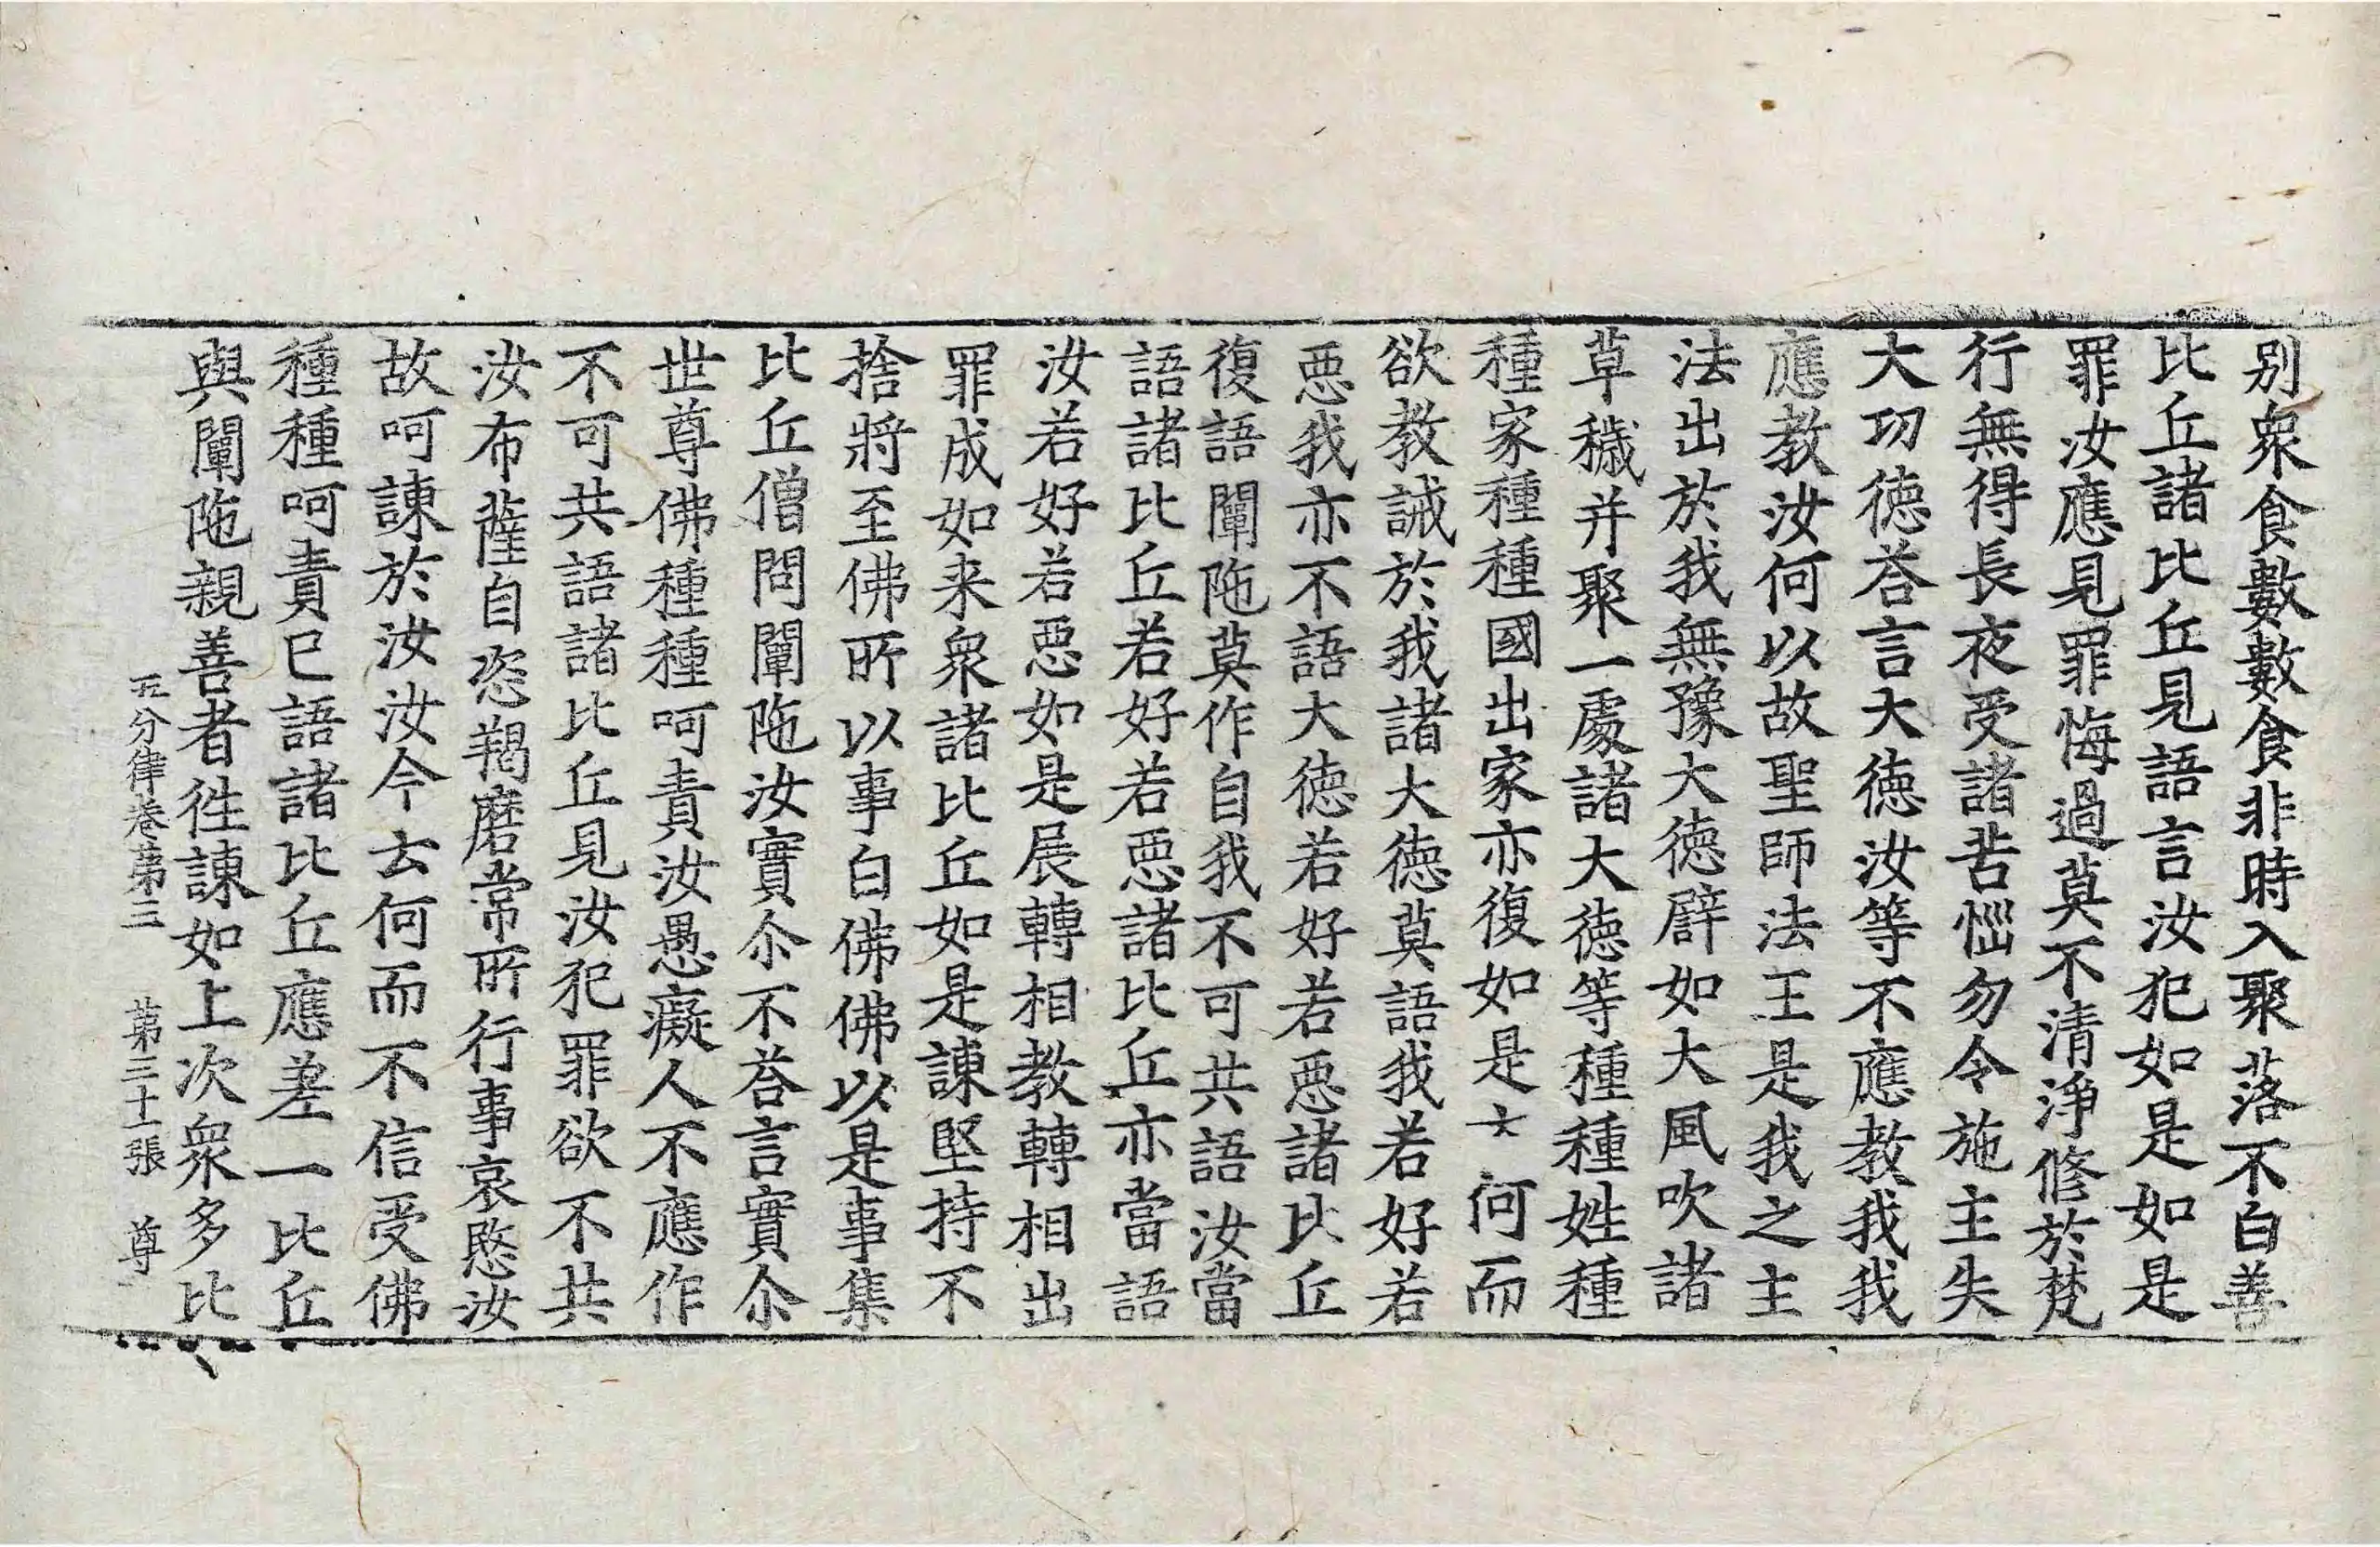 别衆食數數食非時入聚落不白善
比丘諸比丘見語言汝犯如是如是
罪汝應見罪悔過莫不清淨修於梵
行無得長夜受諸苦惱勿令施主失
大功德荅言大德汝等不應教我我
應教汝何以故聖師法王是我之主
法出於我無豫大德譬如大風吹諸
草穢并聚一處諸大德等種種姓種
種家種種國出家亦復如是 何而
欲教誡於我諸大德莫語我若好若
惡我亦不語大德若好若惡諸比丘
復語闡陁莫作自我不可共語汝當
語諸比丘若好若惡諸比丘亦當語
汝若好若惡如是展轉相教轉相出
罪成如来衆諸比丘如是諫堅持不
捨將至佛所以事白佛佛以是事集
比丘僧問闡陁汝實尒不荅言實尒
世尊佛種種呵責汝愚癡人不應作
不可共語諸比丘見汝犯罪欲不共
汝布薩自恣羯磨常所行事哀愍汝
故呵諫於汝汝今云何而不信受佛
種種呵責已語諸比丘應差一比丘
與闡陁親善者往諫如上次衆多比
五分律卷第三 第三十張 尊